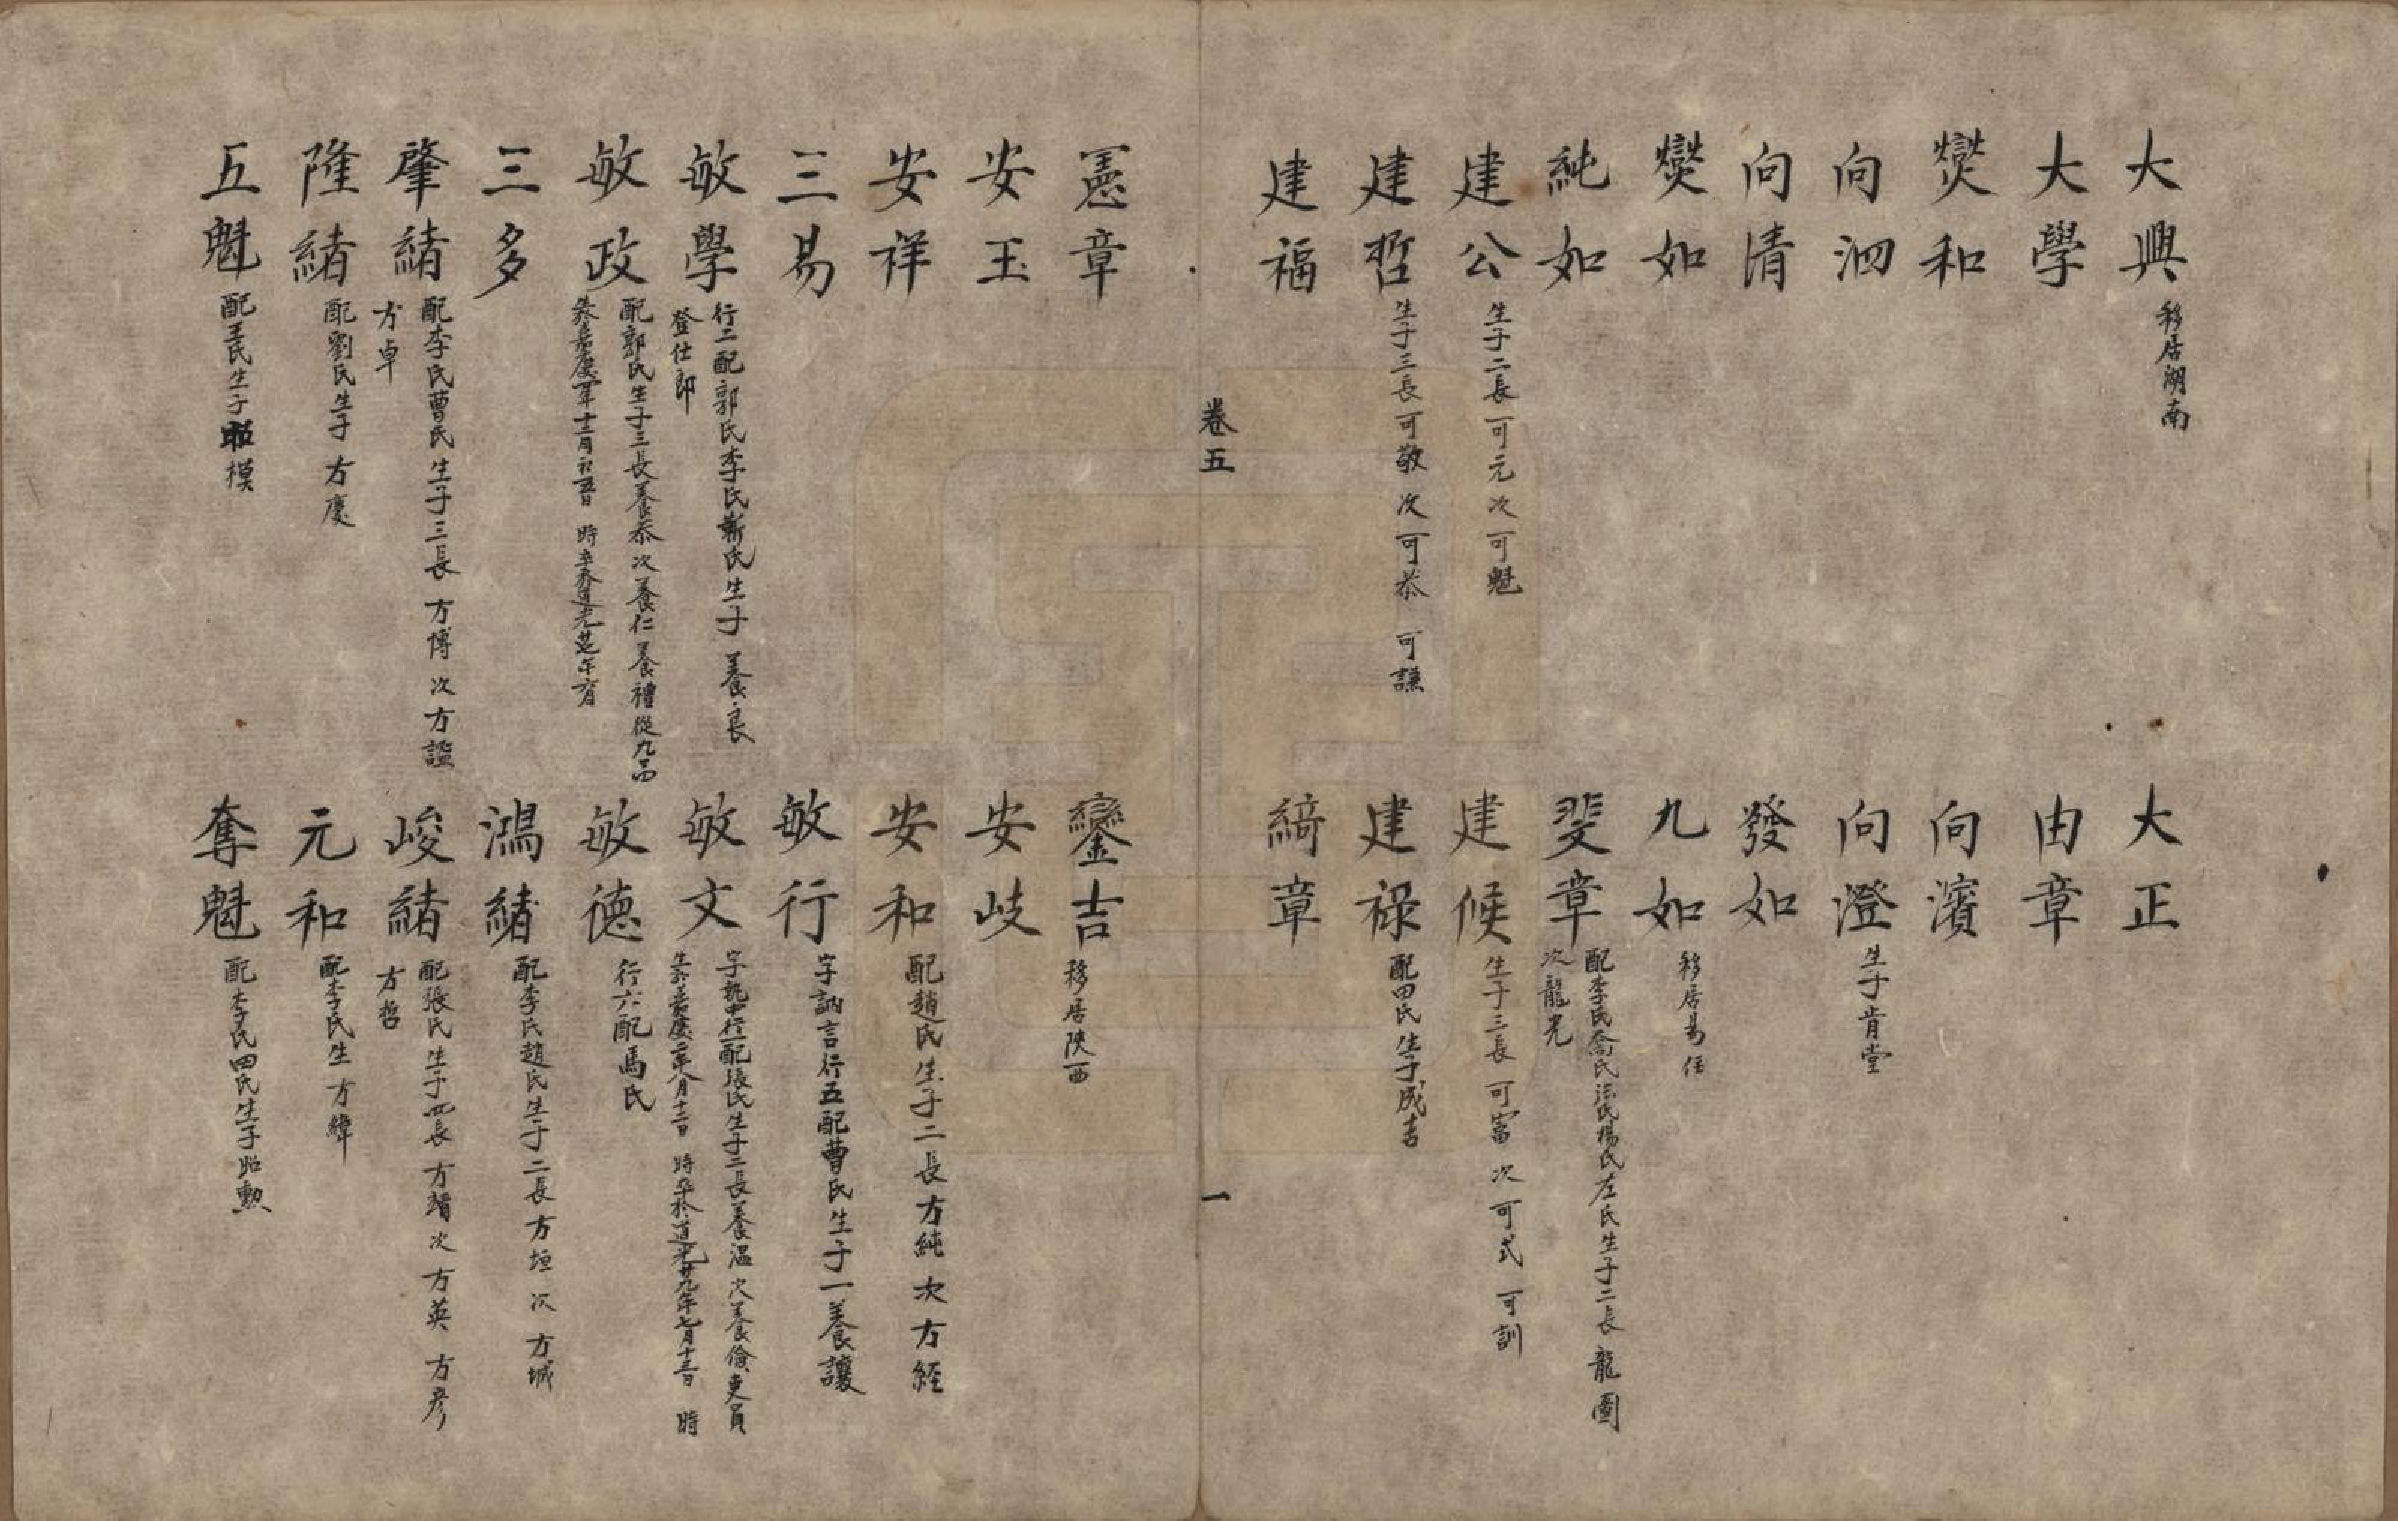 大興 移居湖南
大正
大學
由章
爕和
向濱
向泗
向澄 生子肯堂
向清
發如
爕如
九如 移居易任
純如
斐章 配李氏喬氏汪氏楊氏左氏生子二長龍圖
次龍光
建公 生子二長可元次可魁
建候 生子三長可富次可式可訓
建哲 生子三長可敬次可恭可謙
建祿 配田氏生子成吉
建福
綺章
卷五
一
憲章
鑾吉 移居陝西
安玉
安岐
安祥
安和 配趙氏生子二長方純次方経
三易
敏行 字訥言行五配曹氏生子一養讓
敏學 行二配郭氏李氏靳氏生子養良
登仕郎
敏文 字執中行一配張氏生子二長養溫次養儉吏員
生於嘉慶二年八月十三日時卒於道光廿九年七月十三日時
敏政 配郭氏生子三長養恭次養仁養禮從九品
嘉慶年十二月初五日時卒於道光
敏德 行六配馬氏
三多
鴻緒 配李氏趙氏生子二長方垣次方城
肇緒 配李氏曹氏生子三長方博次方謐
方卓
峻緒 配張氏生子四長方靖次方英方彦
方哲
隆緒 配劉氏生子方慶
元和 配李氏生方緯
五魁 配王氏生子昭模
奪魁 配李氏田氏生子昭勲